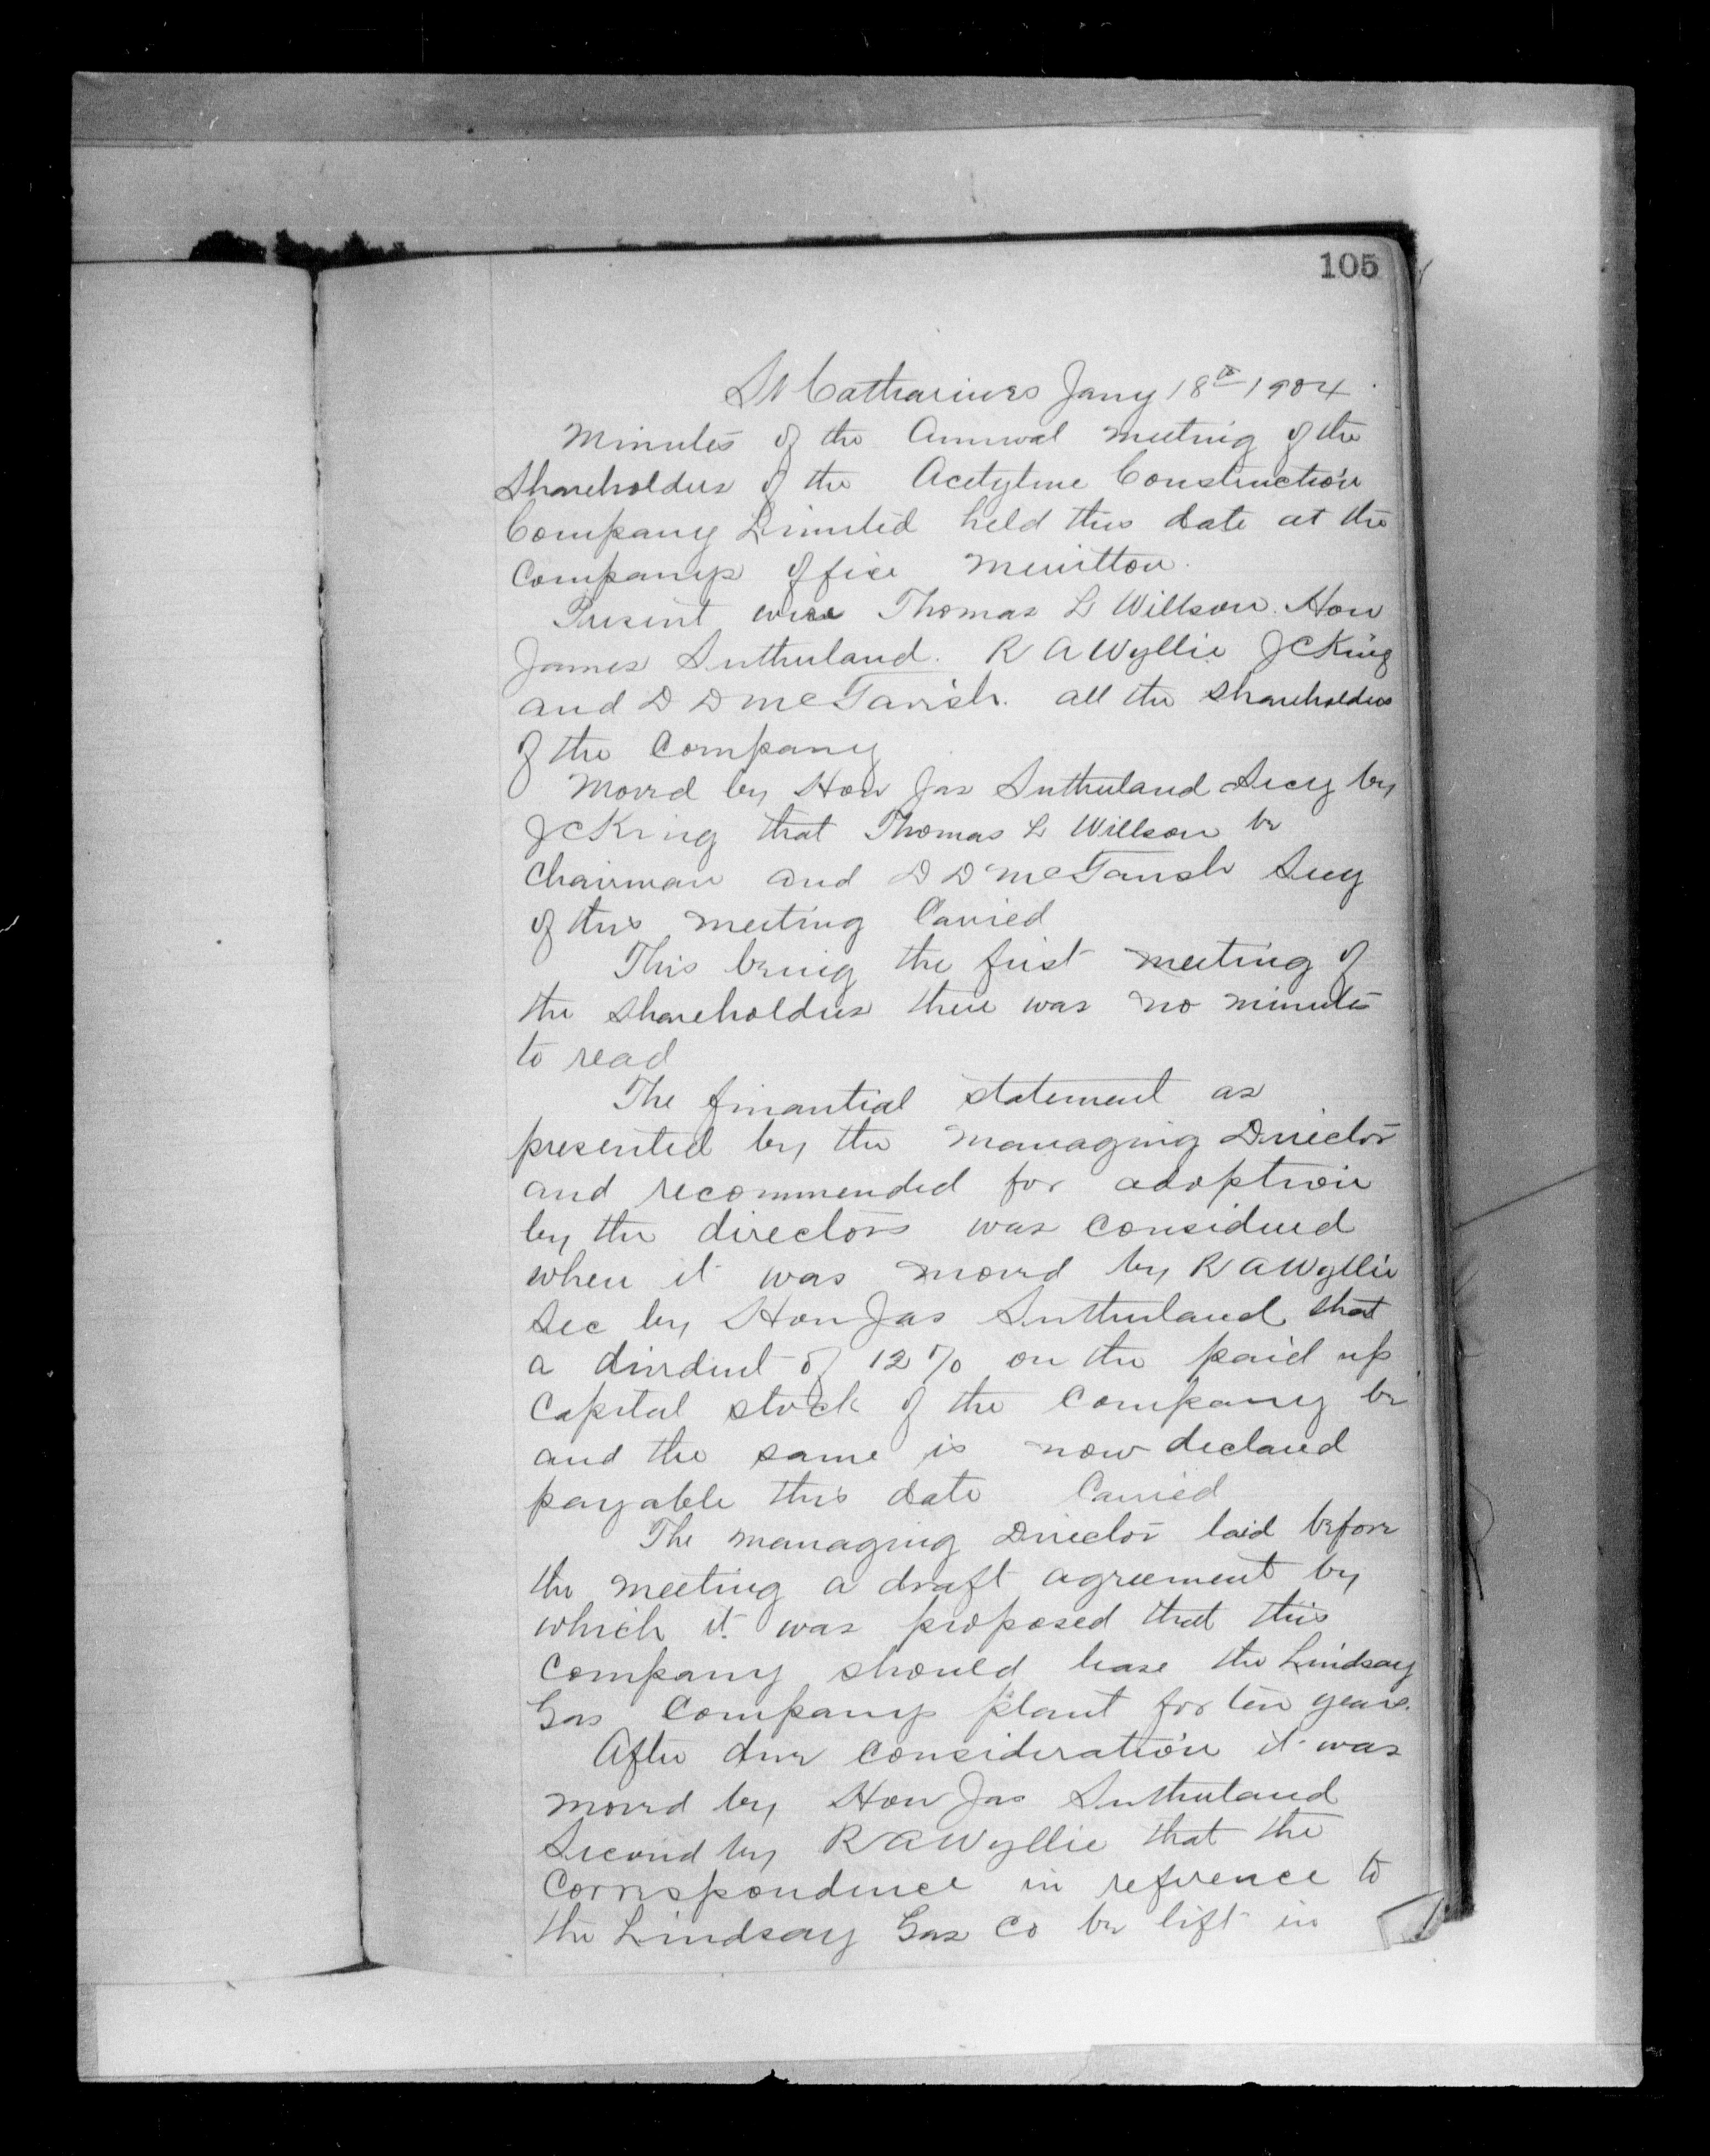 105
St Catharines Jany 18th 1904
Minutes of the Annual meeting of the
Shareholders of the Acetylene Construction
Company Limited held this date at the
Companys office Merritton.
Present were Thomas L Willson. Hon
James Sutherland. R A Wyllie J C King
and D D McTavish. all the shareholders
of the Company
Moved by Hon Jas Sutherland Secy by
J C King that Thomas L Willson be
Chairman and D D McTavish Secy
of this meeting Carried
This being the first meeting of
the shareholders there was no minutes
to read
The finantial statement as
presented by the managing Director
and recommended for adoption
by the directors was considered
when it was moved by R A Wyllie
Sec by Hon Jas Sutherland that
a dividend of 12% on the paid up
Capital stock of the Company be
and the same is now declared
payable this date Carried
The managing Director laid before
the meeting a draft agreement by
which it was proposed that this
Company should lease the Lindsay
Gas Companys plant for ten years.
After due consideration it was
moved by Hon Jas Sutherland
Second by R A Wyllie that the
Correspondence in reference to
the Lindsay Gas Co be left in